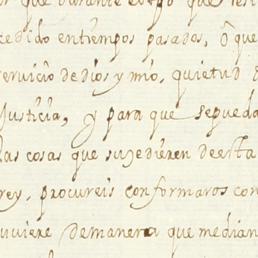 que durante
cedido entiempos pasados, ô que
servicio de dios y mío, quietud
Justicia, y para que sepueda
las cosas que sujedieren deesta
rey, procureis conformaros con
uviere demanera que median